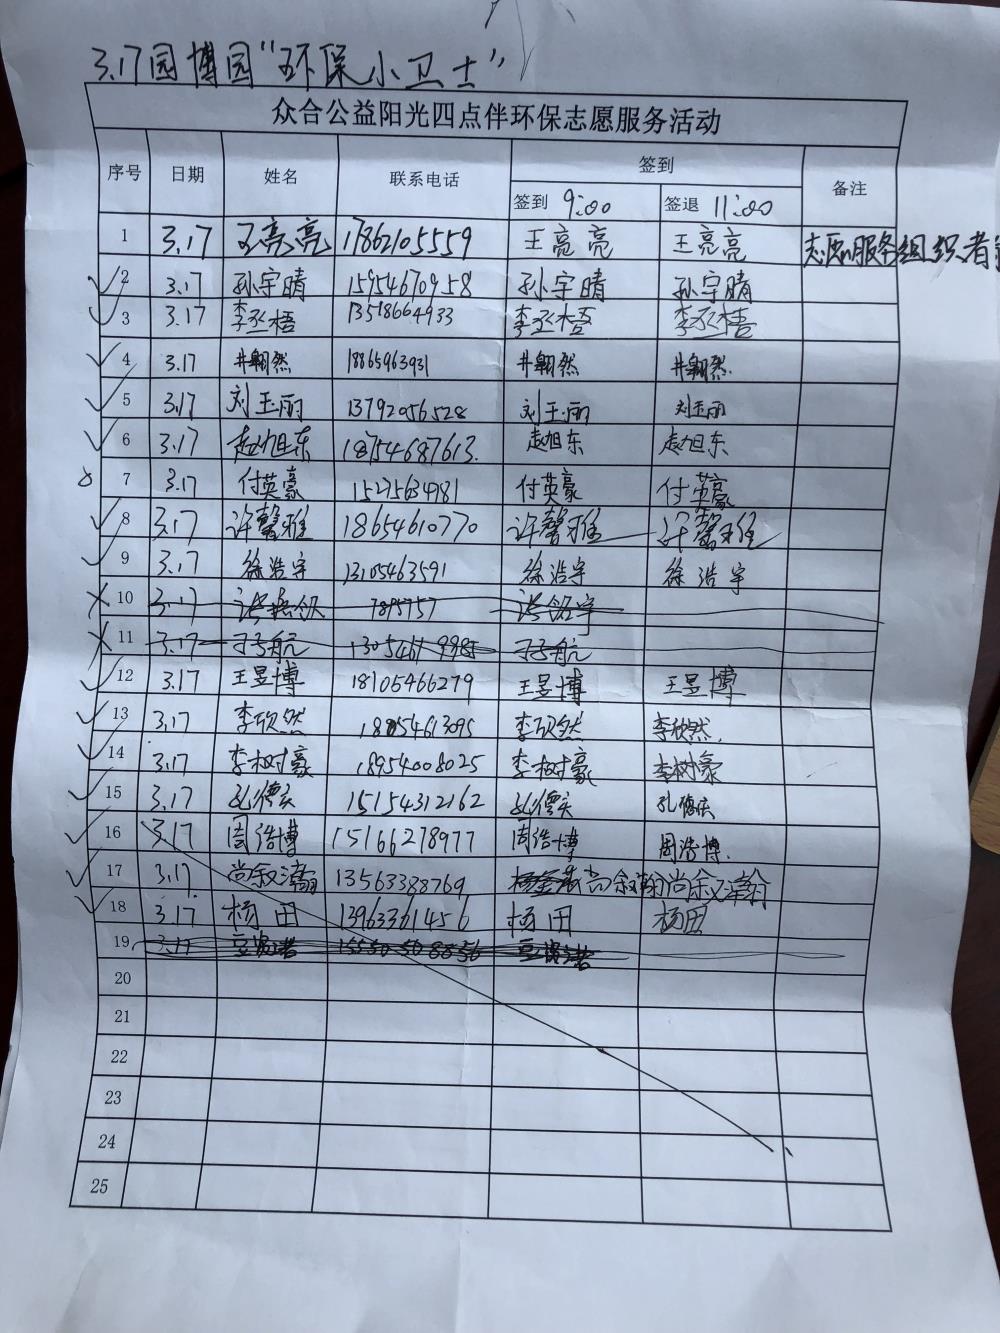 3.17园博园“环保小卫士”
众合公益阳光四点伴环保志愿服务活动
序号 日期 姓名 联系电话 签到 备注
签到 9:00 签退 11:00
1 3.17 王亮亮 17862105559 王亮亮 王亮亮 志愿服务组织者
2 3.17 孙宇晴 15954670958 孙宇晴 孙宇晴
3 3.17 李丞梧 13518664933 李丞梧 李丞梧
4 3.17 井翱然 18865963931 井翱然 井翱然
5 3.17 刘玉丽 13792056528 刘玉丽 刘玉丽
6 3.17 赵旭东 18754687613. 赵旭东 赵旭东
7 3.17 付英豪 付英豪 付英豪
8 3.17 许馨雅 18654610770 许馨雅 许馨雅
9 3.17 徐浩宇 13105463591 徐浩宇 徐浩宇
10 3.17 7895757
11 3.17
12 3.17 王昱博 18105466279 王昱博 王昱博
13 3.17 李欣然 18854613095 李欣然 李欣然
14 3.17 李树豪 18954008025 李树豪 李树豪
15 3.17 15154312162
16 3.17 周浩博 15166278977 周浩博 周浩博
17 3.17 尚叙瀚 13563388769 尚叙瀚 尚叙瀚
18 3.17 杨田 13963361456 杨田 杨田
19 3.17
20
21
22
23
24
25